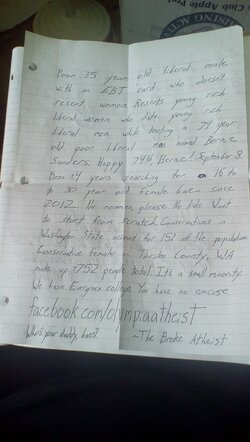 Club Apple
Poor 35 year old liberal male
with an EBT card who doesnt
resent women. Resents young rich
liberal women who date young rich
liberal men while touting a 74 year
old poor liberal man named Bernie
Sanders. Happy 74th Bernie! September 8.
Been 4 years searching for a 16 to
30 year old female love since
2012. No mommies, please. No kids. Want
to start from scratch. Conservatives in
State account for 15% of the population
Conservative females in Thurston County, WA
make up 752 people total. It's a small minority.
We have Evergreen college. You have no excuse
facebook.com/olympiaatheist
Who's your daddy, ?
~The Broke Atheist